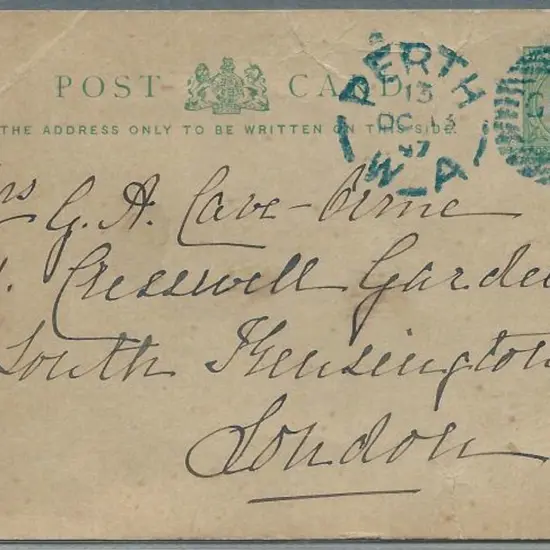 POST CARD
THE ADDRESS ONLY TO BE WRITTEN ON THIS SIDE.
PERTH
13
OC 13
97
W-A
Mrs G. A. Cave-Orme
Cresswell Gardens
South Kensington
London